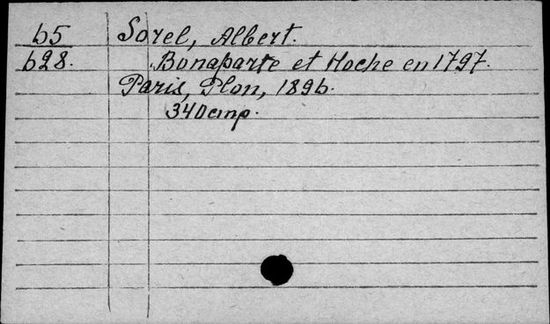 b5 Sorel, Albert.
b28. Bonaparte et Hoche en 1797.
Paris, Plon, 1896.
340 p.